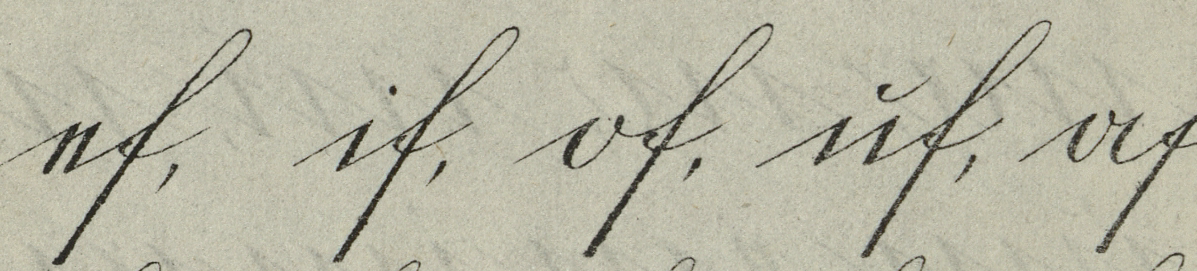 ef, if, of, uf, af